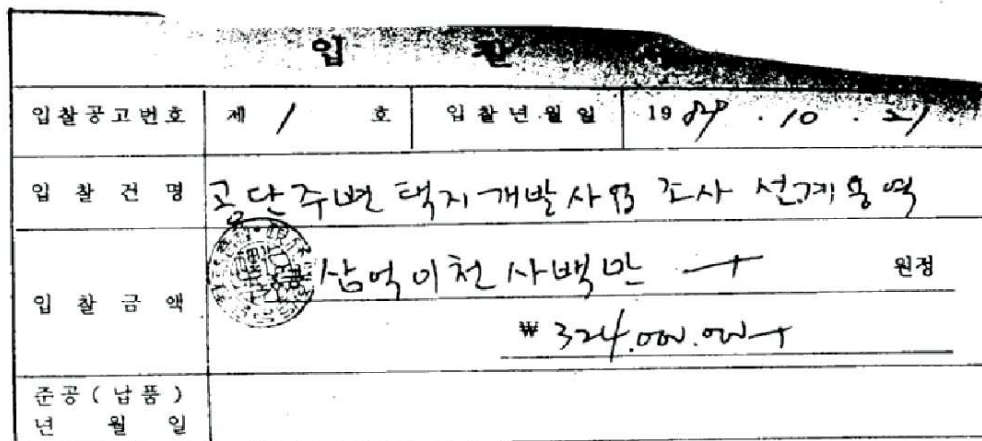 입 찰
입찰공고번호 제 1 호 입찰년월일 19 . 10 . 21.
입 찰 건 명 공단주변 택지개발사업 조사 설계용역
입 찰 금 액 삼억이천사백만 원정
₩ 324.000.000
준공 ( 납품 )
년 월 일